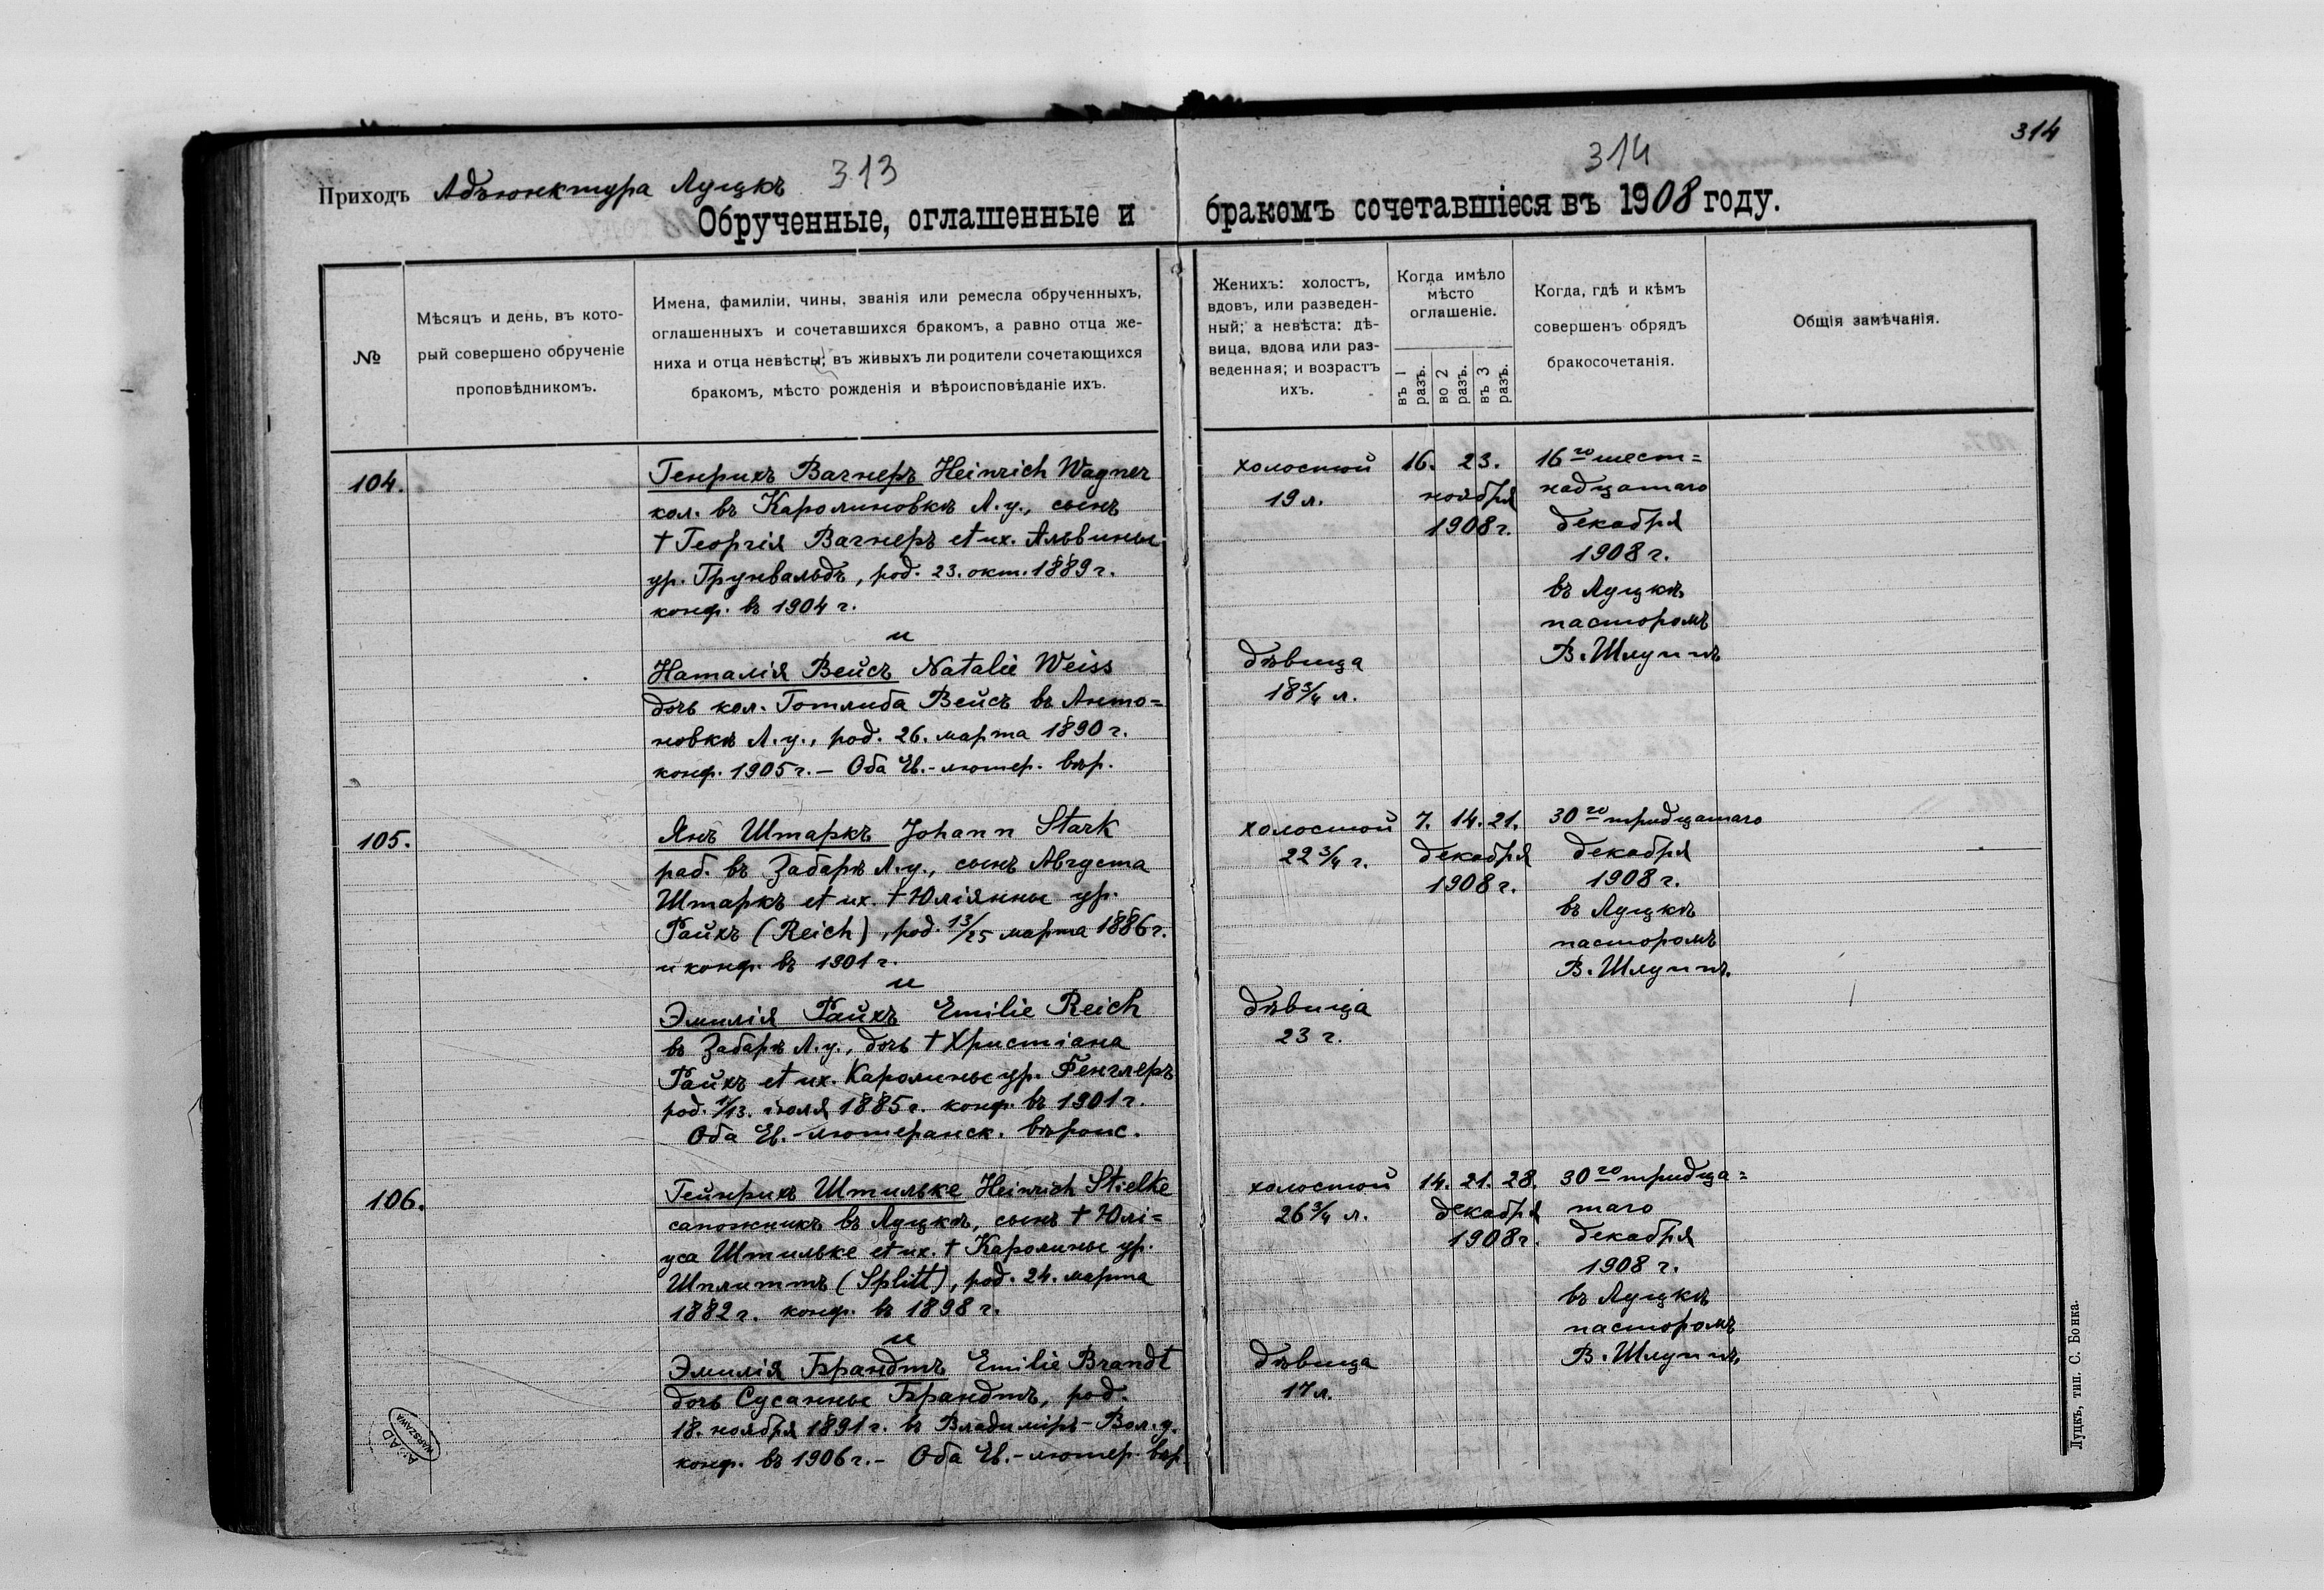 Приходъ Адъюнктура Луцкъ 313
Обрученные, оглашенные и
№
Мѣсяцъ и день, въ кото-
рый совершено обрученіе
проповѣдникомъ.
Имена, фамиліи, чины, званія или ремесла обрученныхъ,
оглашенныхъ и сочетавшихся бракомъ, а равно отца же-
ниха и отца невѣсты; въ живыхъ ли родители сочетающихся
бракомъ, мѣсто рожденія и вѣроисповѣданіе ихъ.
104.
Генрихъ Вагнеръ Heinrich Wagner
кол. въ Каролиновкѣ Л.у., сынъ
† Георгія Вагнеръ et ux. Альвины
ур. Грунвальдъ, род. 23. окт. 1889 г.
конф. въ 1904 г.
и
Наталія Вейсъ Natalie Weiss
дочь кол. Готлиба Вейсъ въ Анто=
новкѣ Л.у., род. 26. марта 1890 г.
конф. 1905 г. – Оба Ев.-лютер. вѣр.
105.
Янъ Штаркъ Johann Stark
раб. въ Забарѣ Л.у., сынъ Августа
Штаркъ et ux. † Юліянны ур.
Райхъ (Reich), род. 13/25 марта 1886 г.
и конф. въ 1901 г.
и
Эмилія Райхъ Emilie Reich
въ Забарѣ Л.у., дочь † Христіана
Райхъ et ux. Каролины ур. Фенглеръ
род. 1/13. іюля 1885 г. конф. въ 1901 г.
Оба Ев.-лютеранск. вѣроис.
106.
Гейнрихъ Штильке Heinrich Stielke
сапожникъ въ Луцкѣ, сынъ † Юлі=
уса Штильке et ux. † Каролины ур.
Шплиттъ (Splitt), род. 24. марта
1882 г. конф. въ 1898 г.
и
Эмилія Брандтъ Emilie Brandt
дочь Сусанны Брандтъ, род.
18. ноября 1891 г. въ Владимірѣ-Вол. у.
конф. въ 1906 г. – Оба Ев.-лютер. вѣр.
AGAD
WARSZAWA
314
314
бракомъ сочетавшіеся въ 1908 году.
Женихъ: холостъ,
вдовъ, или разведен-
ный; а невѣста: дѣ-
вица, вдова или раз-
веденная; и возрастъ
ихъ.
Когда имѣло
мѣсто
оглашеніе.
въ 1
разъ.
во 2
разъ.
въ 3
разъ.
Когда, гдѣ и кѣмъ
совершенъ обрядъ
бракосочетанія.
Общія замѣчанія.
холостой
19 л.
16. 23.
ноября
1908 г.
16го шест=
надцатаго
декабря
1908 г.
въ Луцкѣ
пасторомъ
В. Шлуппъ
дѣвица
18 3/4 л.
холостой
22 3/4 г.
7. 14. 21.
декабря
1908 г.
30го тридцатаго
декабря
1908 г.
въ Луцкѣ
пасторомъ
В. Шлуппъ.
дѣвица
23 г.
холостой
26 3/4 л.
14. 21. 28.
декабря
1908 г.
30го тридца=
таго
декабря
1908 г.
въ Луцкѣ
пасторомъ
В. Шлуппъ.
дѣвица
17 л.
Луцкъ, тип. С. Бонка.